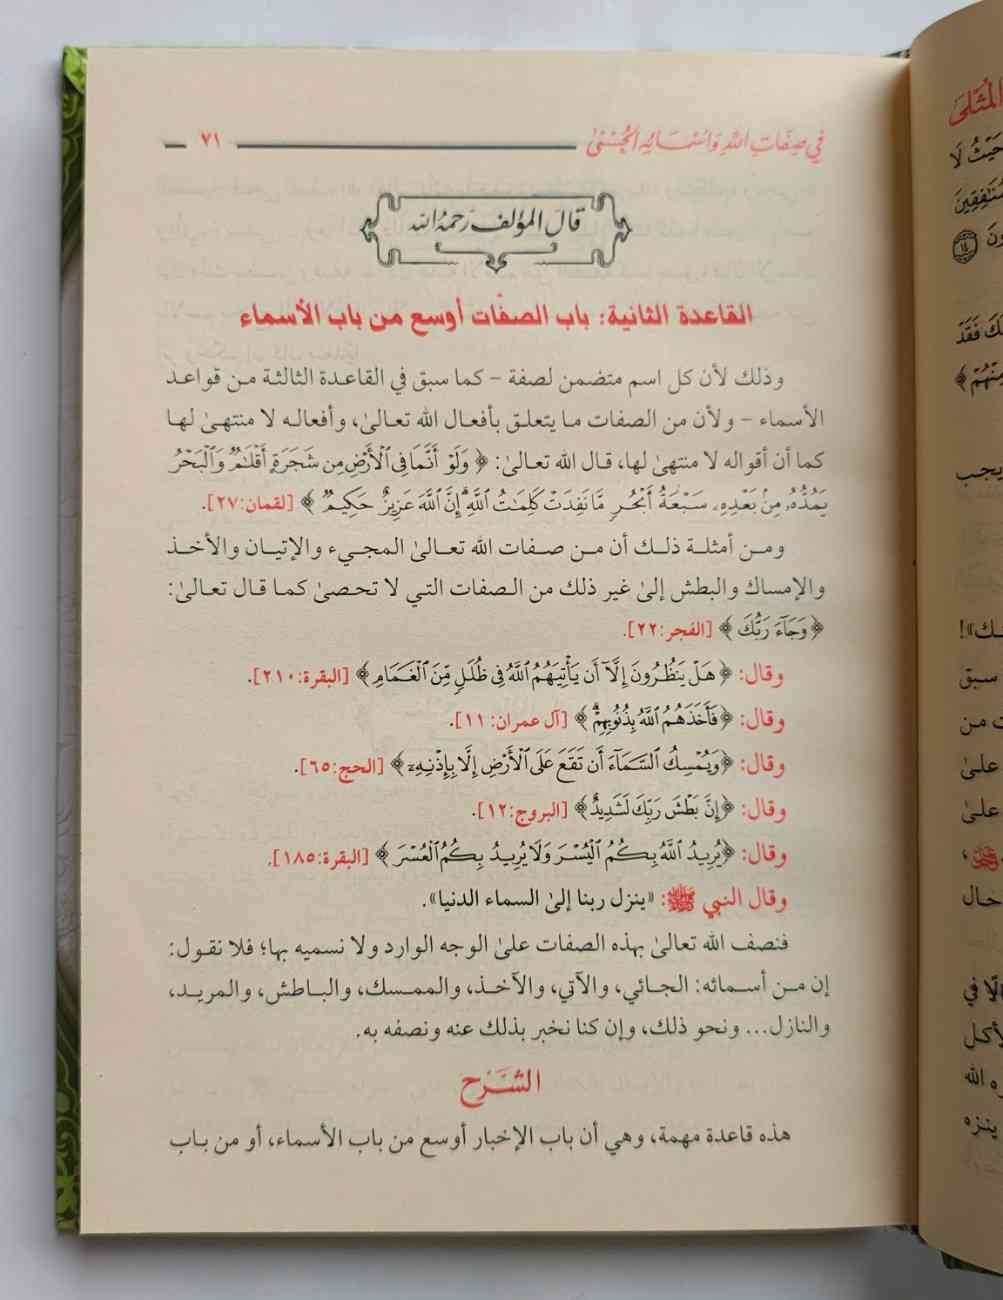 في صفات الله وأسمائه الحسنى
٧١
قال المؤلف رحمه الله
القاعدة الثانية: باب الصفات أوسع من باب الأسماء
وذلك لأن كل اسم متضمن لصفة - كما سبق في القاعدة الثالثة من قواعد
الأسماء - ولأن من الصفات ما يتعلق بأفعال الله تعالىٰ، وأفعاله لا منتهىٰ لها
كما أن أقواله لا منتهىٰ لها، قال الله تعالىٰ: ﴿ وَلَوْ أَنَّمَا فِي ٱلْأَرْضِ مِن شَجَرَةٍ أَقْلَٰمٌ وَٱلْبَحْرُ
يَمُدُّهُۥ مِنۢ بَعْدِهِۦ سَبْعَةُ أَبْحُرٍ مَّا نَفِدَتْ كَلِمَٰتُ ٱللَّهِ ۗ إِنَّ ٱللَّهَ عَزِيزٌ حَكِيمٌ ﴾ [لقمان:٢٧].
ومن أمثلة ذلك أن من صفات الله تعالىٰ المجيء والإتيان والأخذ
والإمساك والبطش إلىٰ غير ذلك من الصفات التي لا تحصىٰ كما قال تعالىٰ:
﴿ وَجَآءَ رَبُّكَ ﴾ [الفجر:٢٢].
وقال: ﴿ هَلْ يَنظُرُونَ إِلَّآ أَن يَأْتِيَهُمُ ٱللَّهُ فِى ظُلَلٍ مِّنَ ٱلْغَمَامِ ﴾ [البقرة:٢١٠].
وقال: ﴿فَأَخَذَهُمُ ٱللَّهُ بِذُنُوبِهِمْ ۗ ﴾ [آل عمران: ١١].
وقال: ﴿وَيُمْسِكُ ٱلسَّمَآءَ أَن تَقَعَ عَلَى ٱلْأَرْضِ إِلَّا بِإِذْنِهِۦٓ ﴾ [الحج:٦٥].
وقال: ﴿إِنَّ بَطْشَ رَبِّكَ لَشَدِيدٌ ﴾ [البروج:١٢].
وقال: ﴿يُرِيدُ ٱللَّهُ بِكُمُ ٱلْيُسْرَ وَلَا يُرِيدُ بِكُمُ ٱلْعُسْرَ ﴾ [البقرة:١٨٥].
وقال النبي ﷺ: «ينزل ربنا إلىٰ السماء الدنيا».
فنصف الله تعالىٰ بهذه الصفات علىٰ الوجه الوارد ولا نسميه بها؛ فلا نقول:
إن من أسمائه: الجائي، والآتي، والآخذ، والممسك، والباطش، والمريد،
والنازل... ونحو ذلك، وإن كنا نخبر بذلك عنه ونصفه به.
الشرح
هذه قاعدة مهمة، وهي أن باب الإخبار أوسع من باب الأسماء، أو من باب